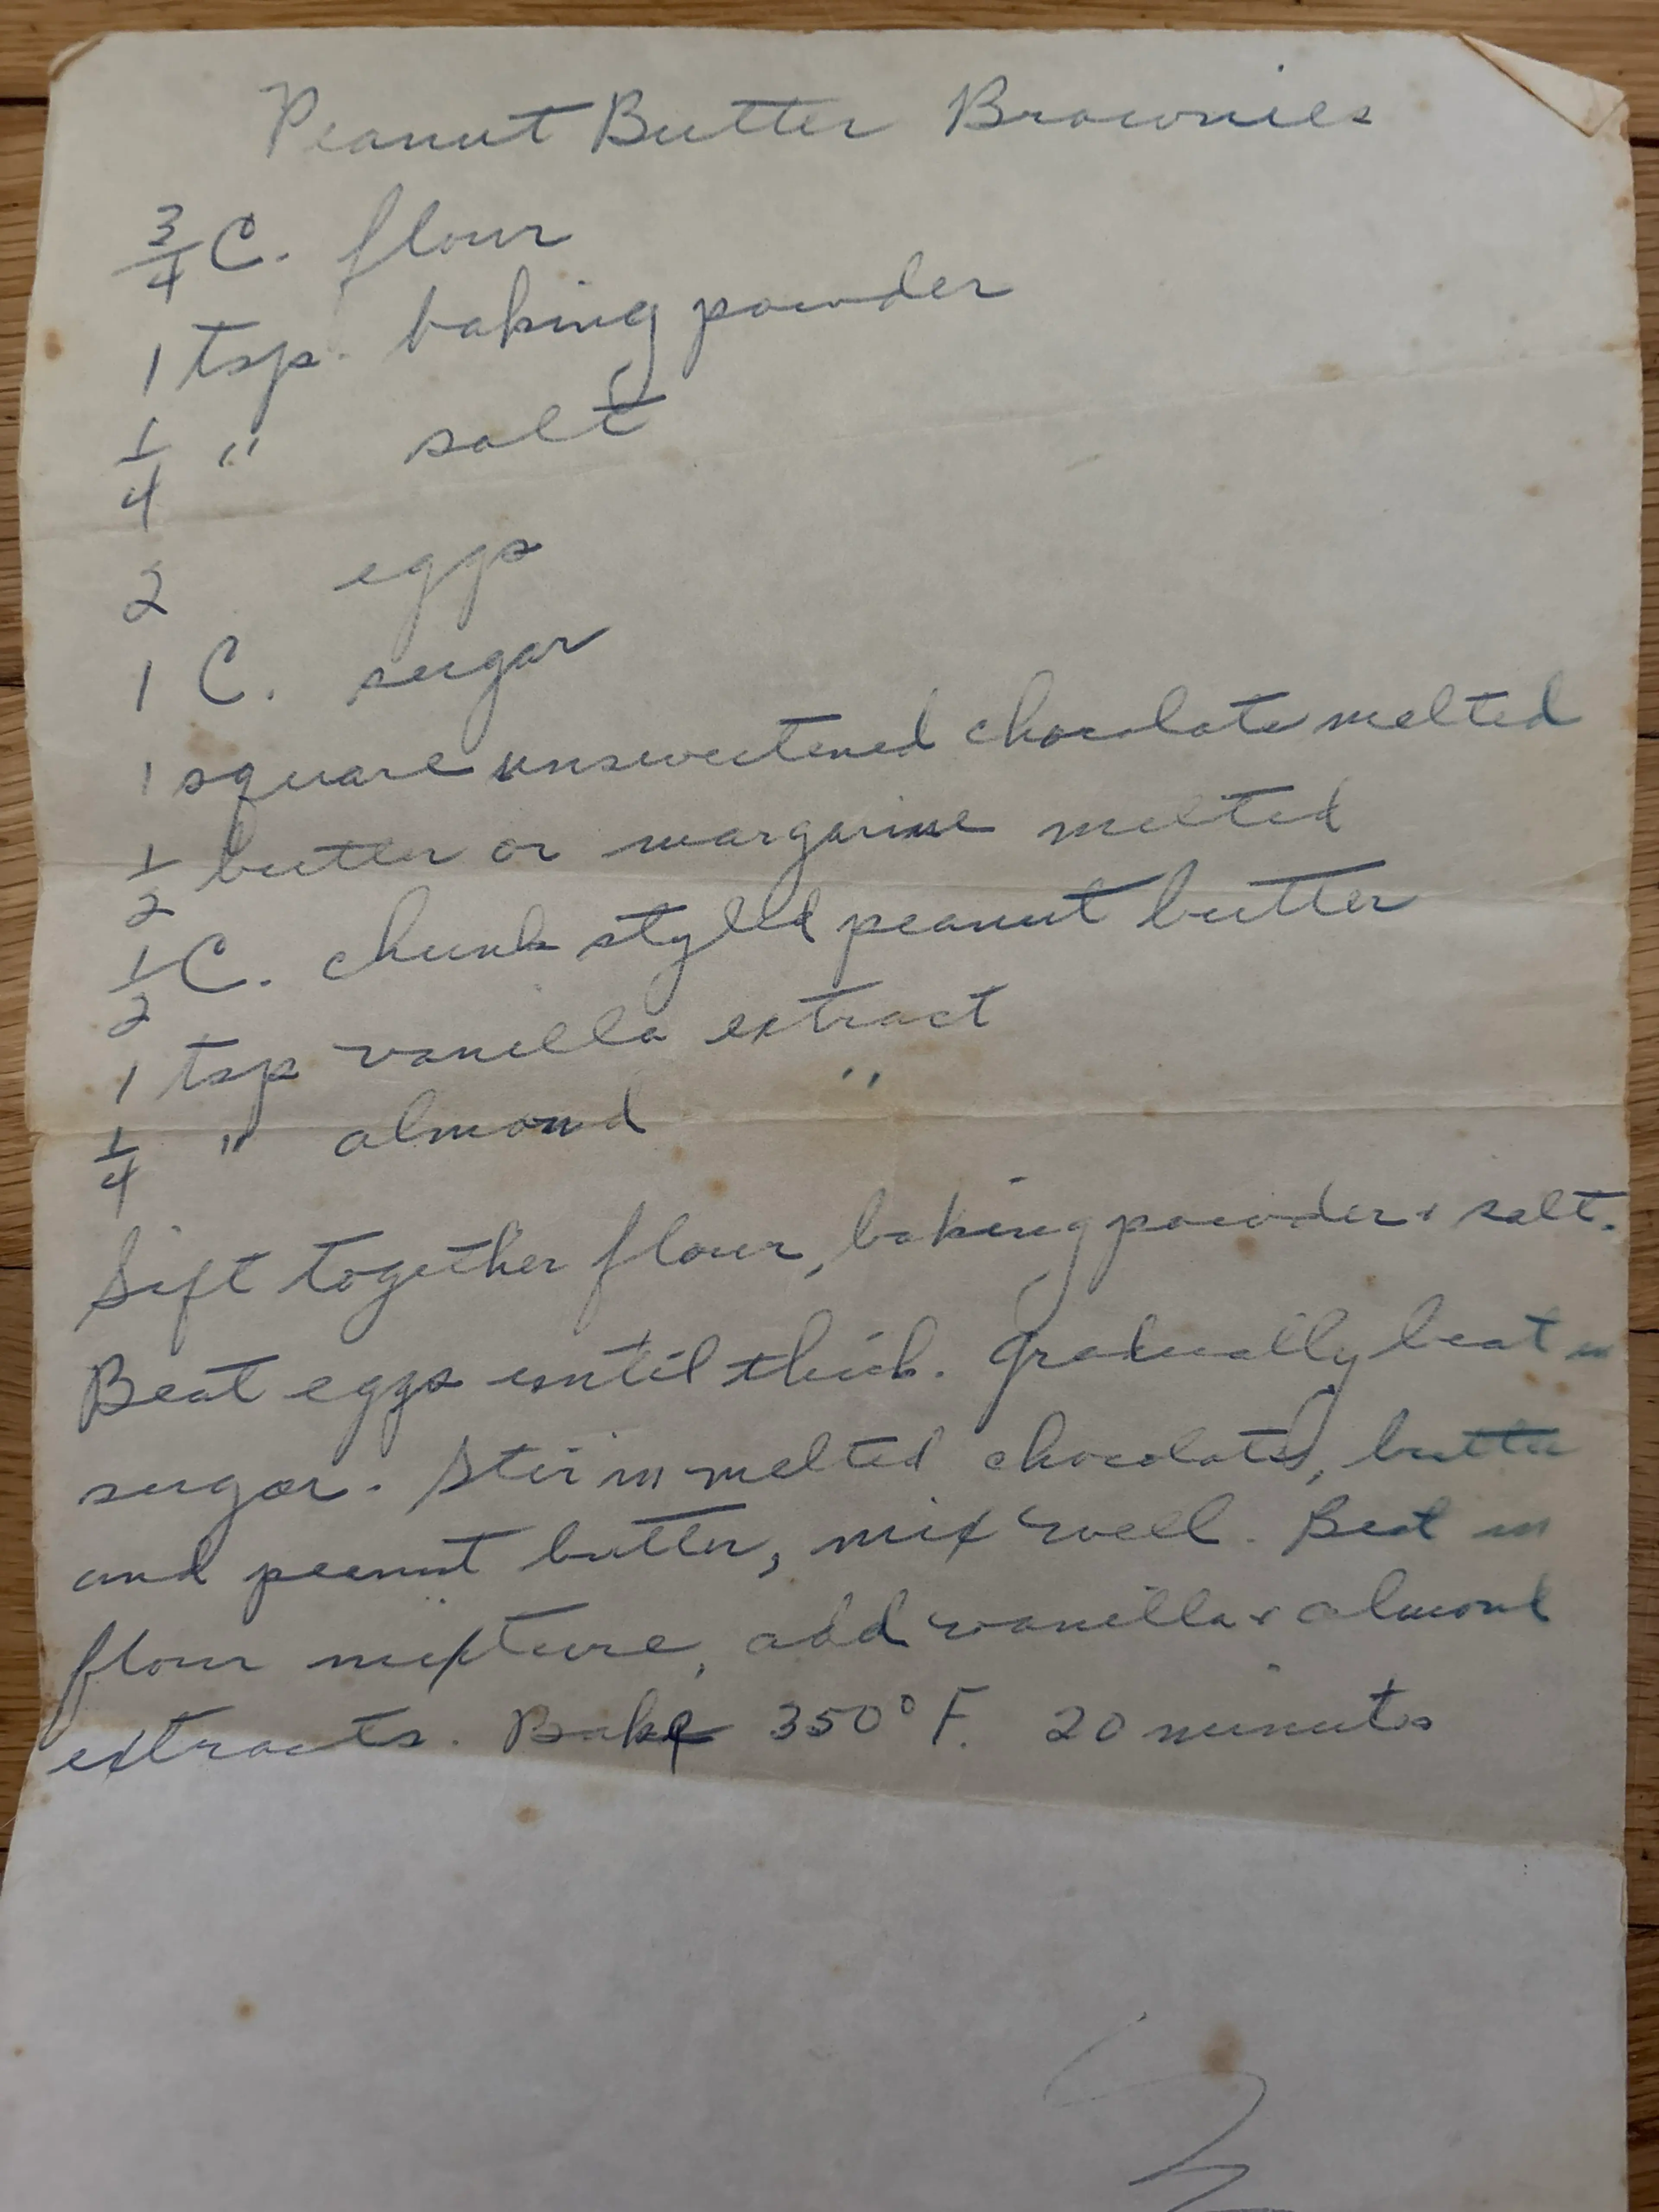 Peanut Butter Brownies
3/4 C. flour
1 tsp. baking powder
1/4 " salt
2 eggs
1 C. sugar
1 square unsweetened chocolate melted
1/2 butter or margarine melted
1/2 C. chunk styled peanut butter
1 tsp vanilla extract
1/4 " almond "
Sift together flour, baking powder & salt.
Beat eggs until thick. Gradually beat in
sugar. Stir in melted chocolate, butter
and peanut butter, mix well. Beat in
flour mixture, add vanilla & almond
extracts. Bake 350° F. 20 minutes